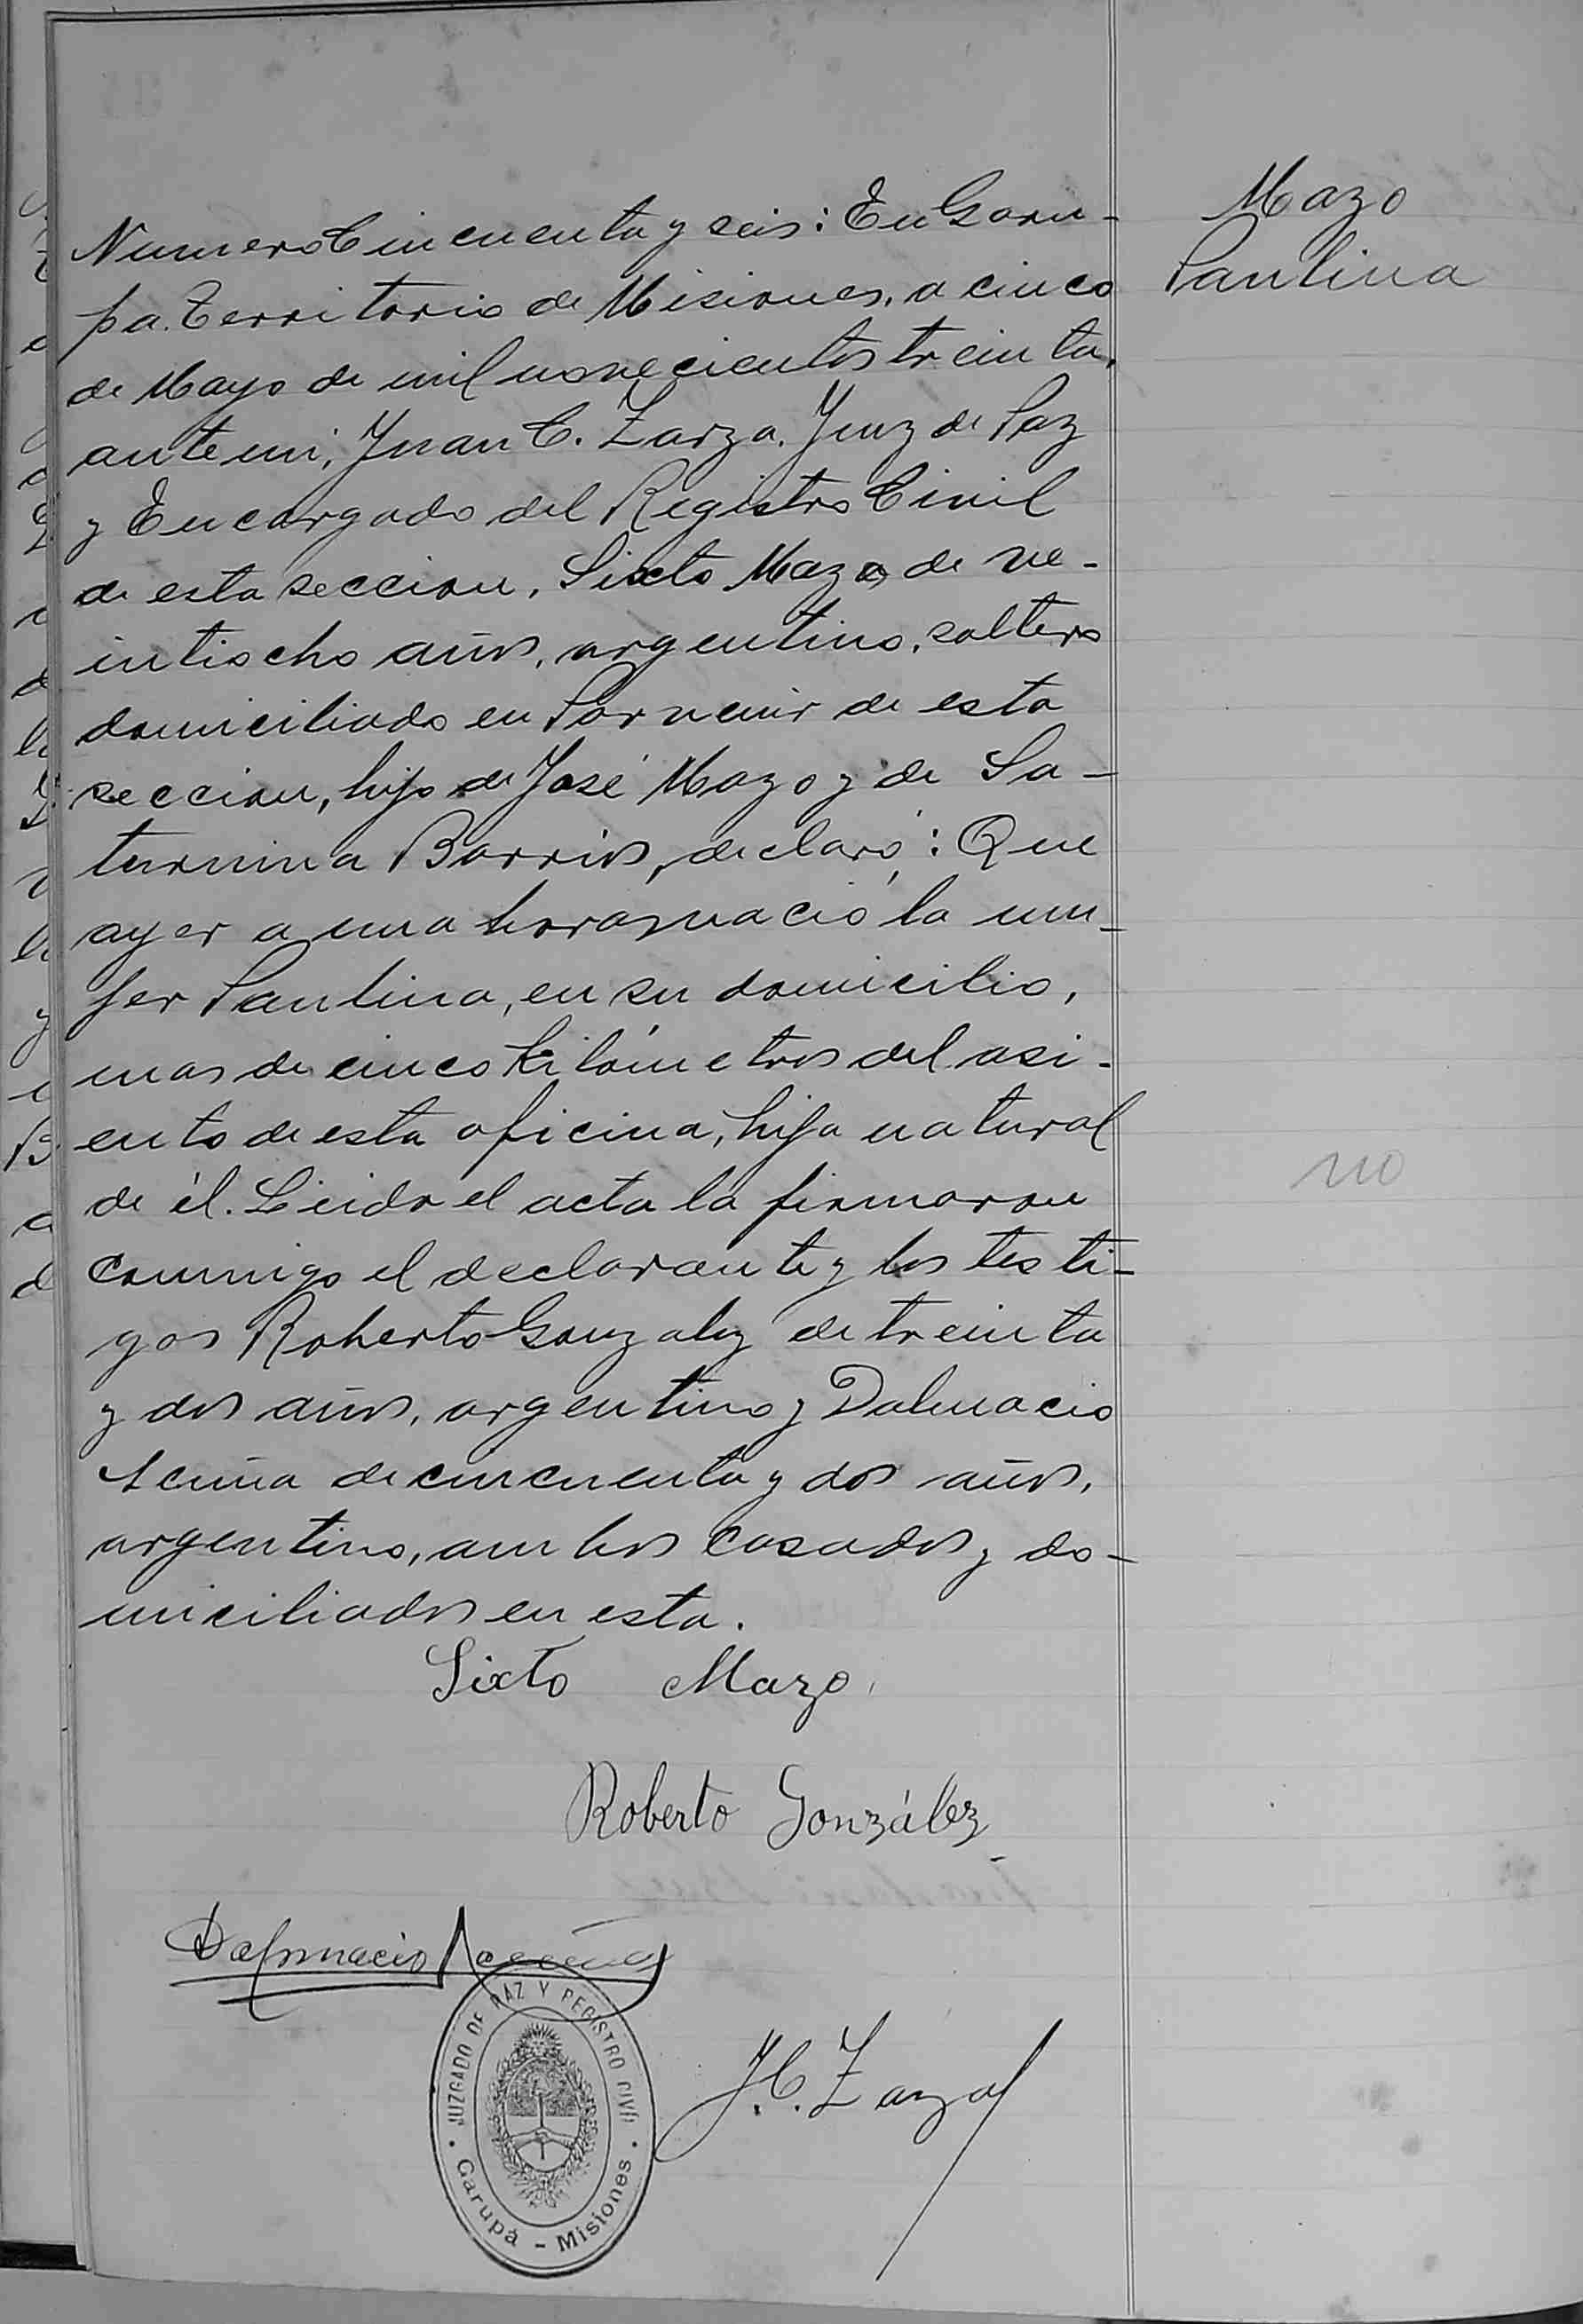 Mazo
Paulina
Numero Cincuenta y seis: En Garu-
pa. Territorio de Misiones, a cinco
de Mayo de mil novecientos treinta,
ante mi, Juan C. Zarza. Juez de Paz
y Encargado del Registro Civil
de esta seccion, Sixto Mazo de ve-
intiocho años, argentino, soltero
domiciliado en Porvenir de esta
seccion, hijo de José Mazo y de Sa-
turnina Barrios, declaró: Que
ayer a una horas nació la mu-
jer Paulina, en su domicilio,
mas de cinco kilómetros del asi-
ento de esta oficina, hija natural
de él. Leida el acta la firmaron
conmigo el declarante y los testi-
gos Roberto Gonzalez de treinta
y dos años, argentino y Dalmacio
de cincuenta y dos años,
argentino, ambos casados y do-
miciliados en esta.
no
Sixto Mazo.
Roberto González
Dalmacio
J. C. Zarza
JUZGADO DE PAZ Y REGISTRO CIVIL
Garupá - Misiones